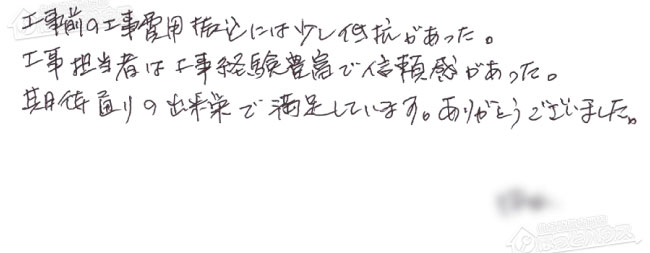 工事前の工事費用振込には少し抵抗があった。
工事担当者は工事経験豊富で信頼感があった。
期待通りの出来栄で満足しています。ありがとうございました。